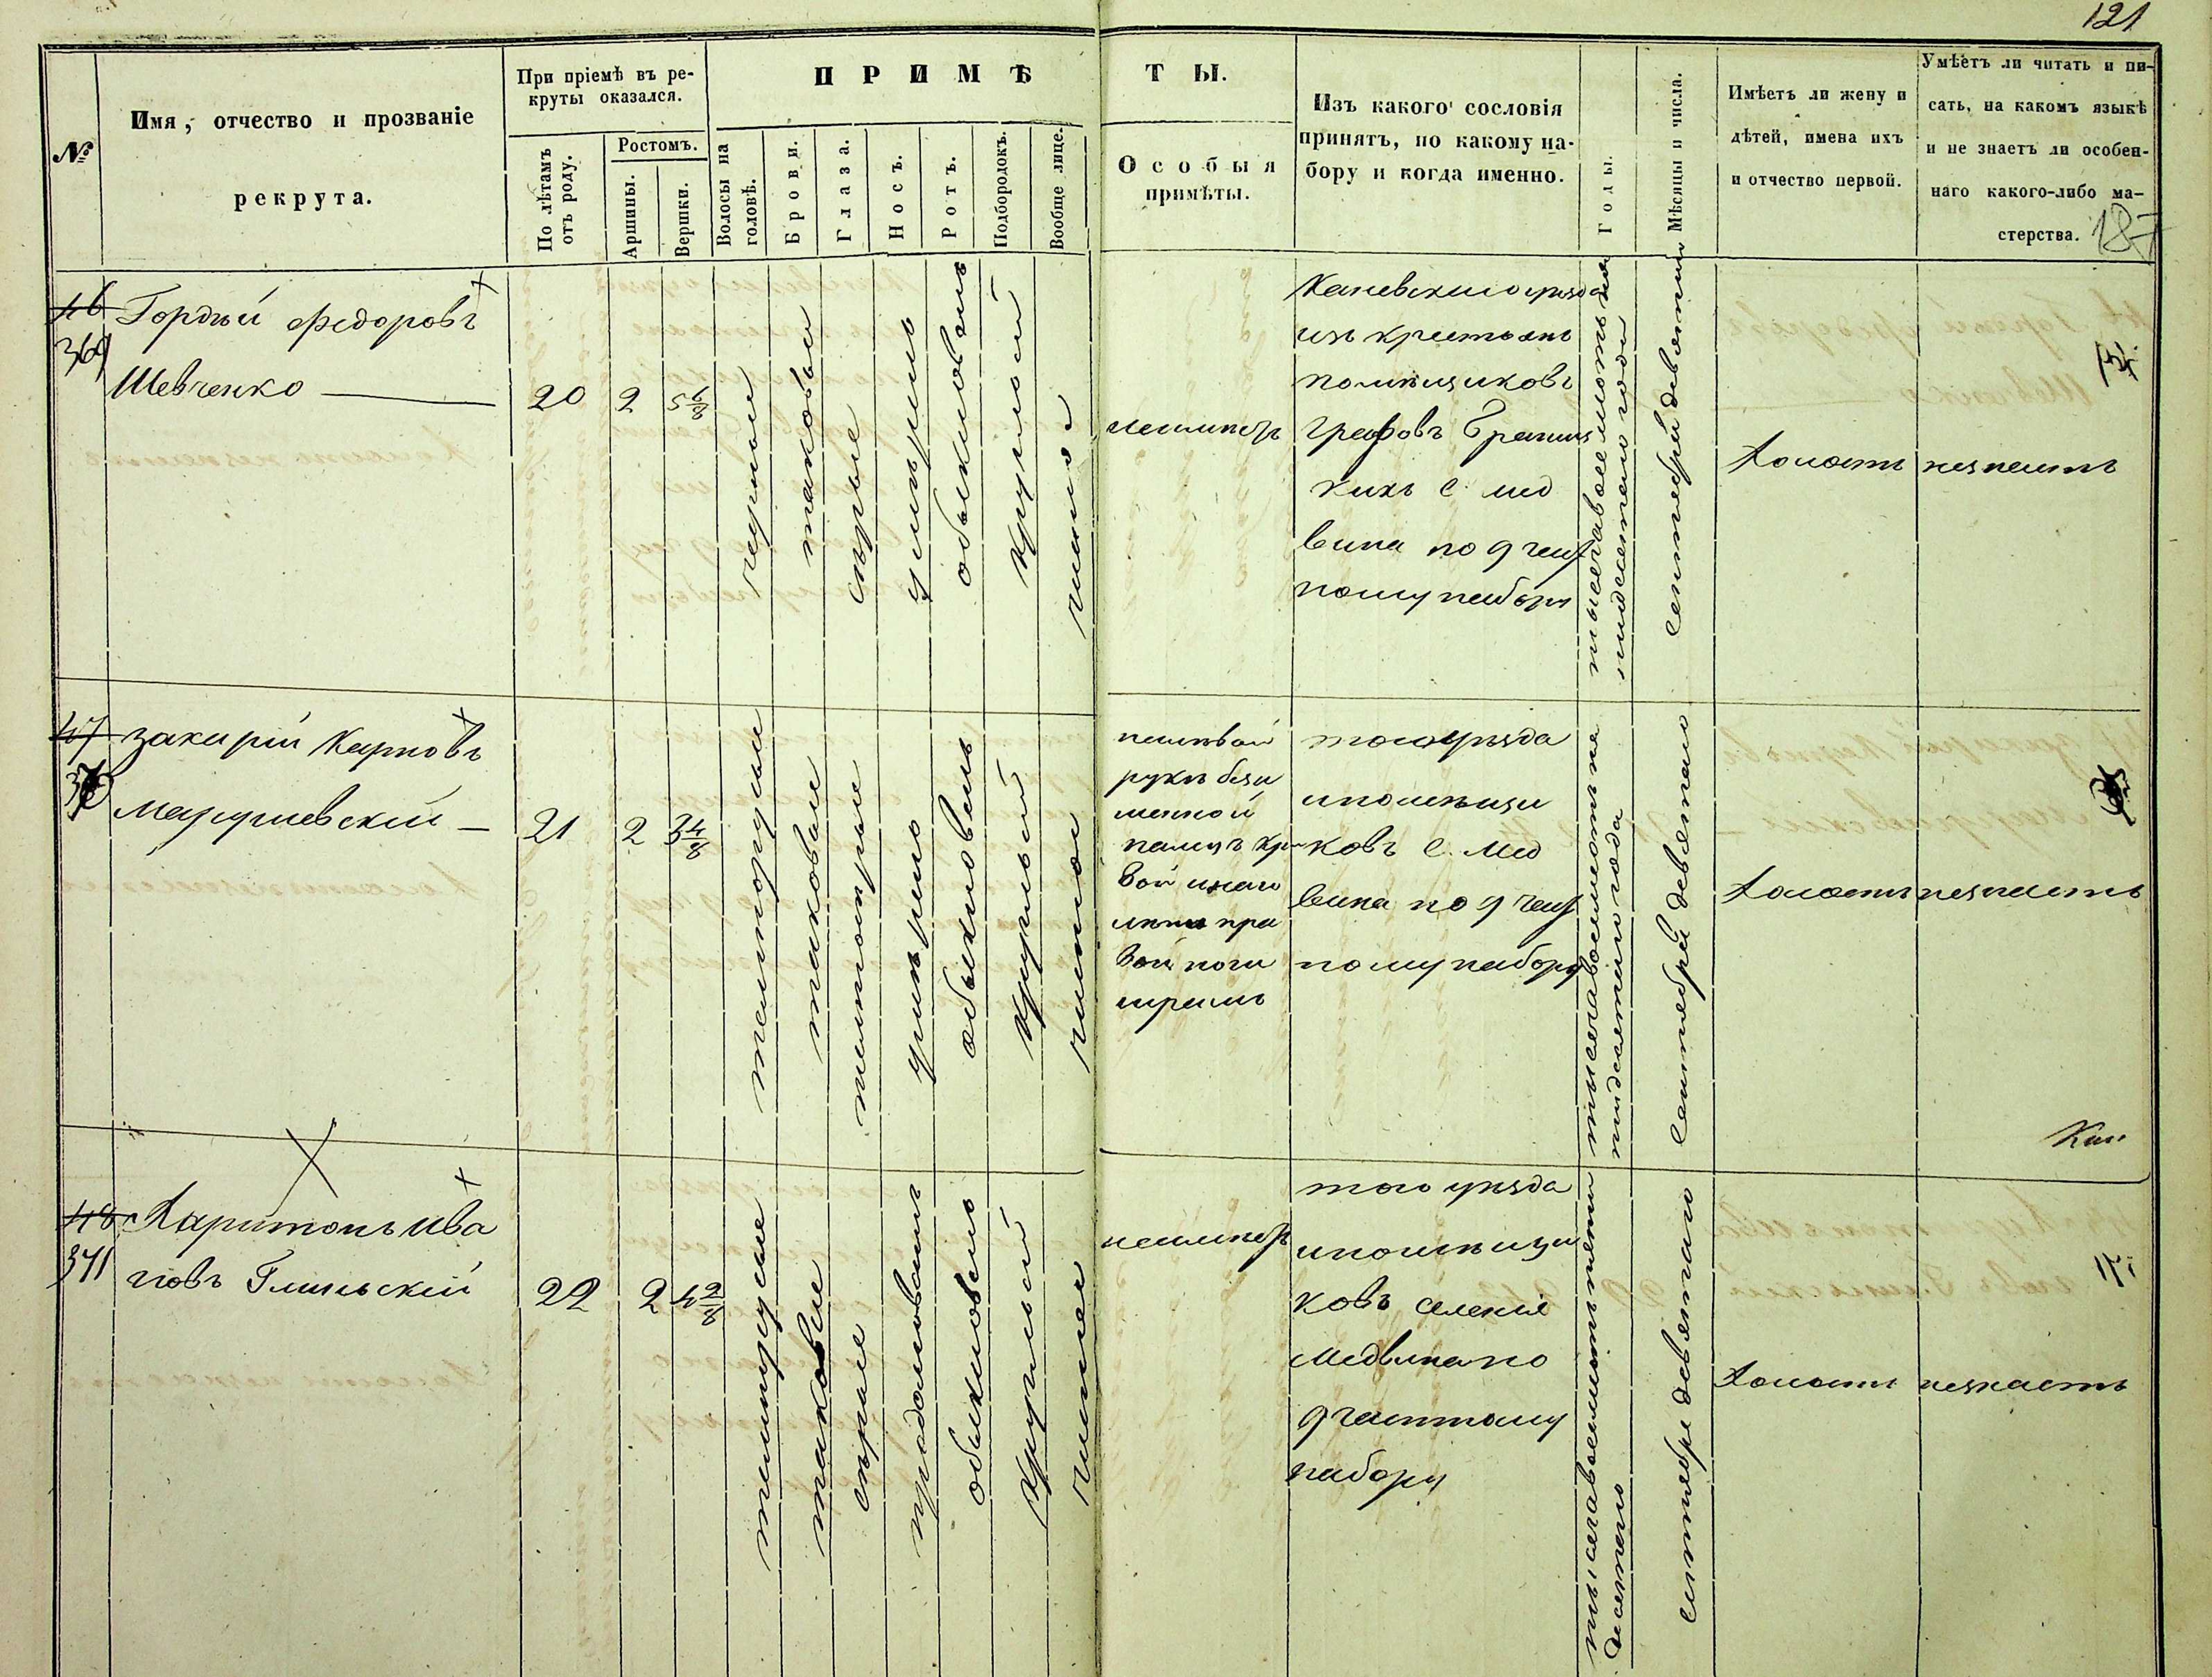 121
№
Имя, отчество и прозваніе
рекрута.
При пріемѣ въ ре-
круты оказался.
По лѣтамъ
отъ роду.
Ростомъ.
Аршины.
Вершки.
ПРИМѢ
ТЫ.
Волосы на
головѣ.
Брови.
Глаза.
Носъ.
Ротъ.
Подбородокъ.
Вообще лице.
Особыя
примѣты.
Изъ какого сословія
принятъ, по какому на-
бору и когда именно.
Годы.
Мѣсяцы и числа.
Имѣетъ ли жену и
дѣтей, имена ихъ
и отчество первой.
Умѣетъ ли читать и пи-
сать, на какомъ языкѣ
и не знаетъ ли особен-
наго какого-либо ма-
стерства.
187
46
369
Гордѣй Федоровъ
Шевченко
20
2
5 6/8
черные
таковые
сѣрые
умѣрено
обыкновенъ
круглой
чистое
неимѣетъ
Каневского уѣзда
изъ крестьянъ
помѣщиковъ
Графовъ Браниц
кихъ с. мед
вина по 9 част
ному набору
тысяча восемсотъ пя
тидесятого года
сентября девятого
холостъ
незнаетъ
47
370
захарій Карповъ
21
2
3 4/8
темнорусые
таковые
темносѣрые
умѣрено
обыкновенъ
круглый
чистое
налѣвой
рукѣ безы
менной
палецъ кри
вой
пра
вой ноги
шрамъ
того уѣзда
ипомѣщи
ковъ с. мед
вина по 9 част
ному набору
тысяча восемсотъ пя
тидесятого года
сентября девятого
холостъ
незнаетъ
48
371
Харитонъ Ива
новъ Глинскій
22
2
4 2/8
темнорусые
таковые
сѣрые
продолговатъ
обыкновено
круглый
чистое
неимѣетъ
того уѣзда
ипомѣщи
ковъ селенія
медвина по
9 частному
набору
тысяча восемсотъ пяти
десятого
сентября девятого
холостъ
незнаетъ